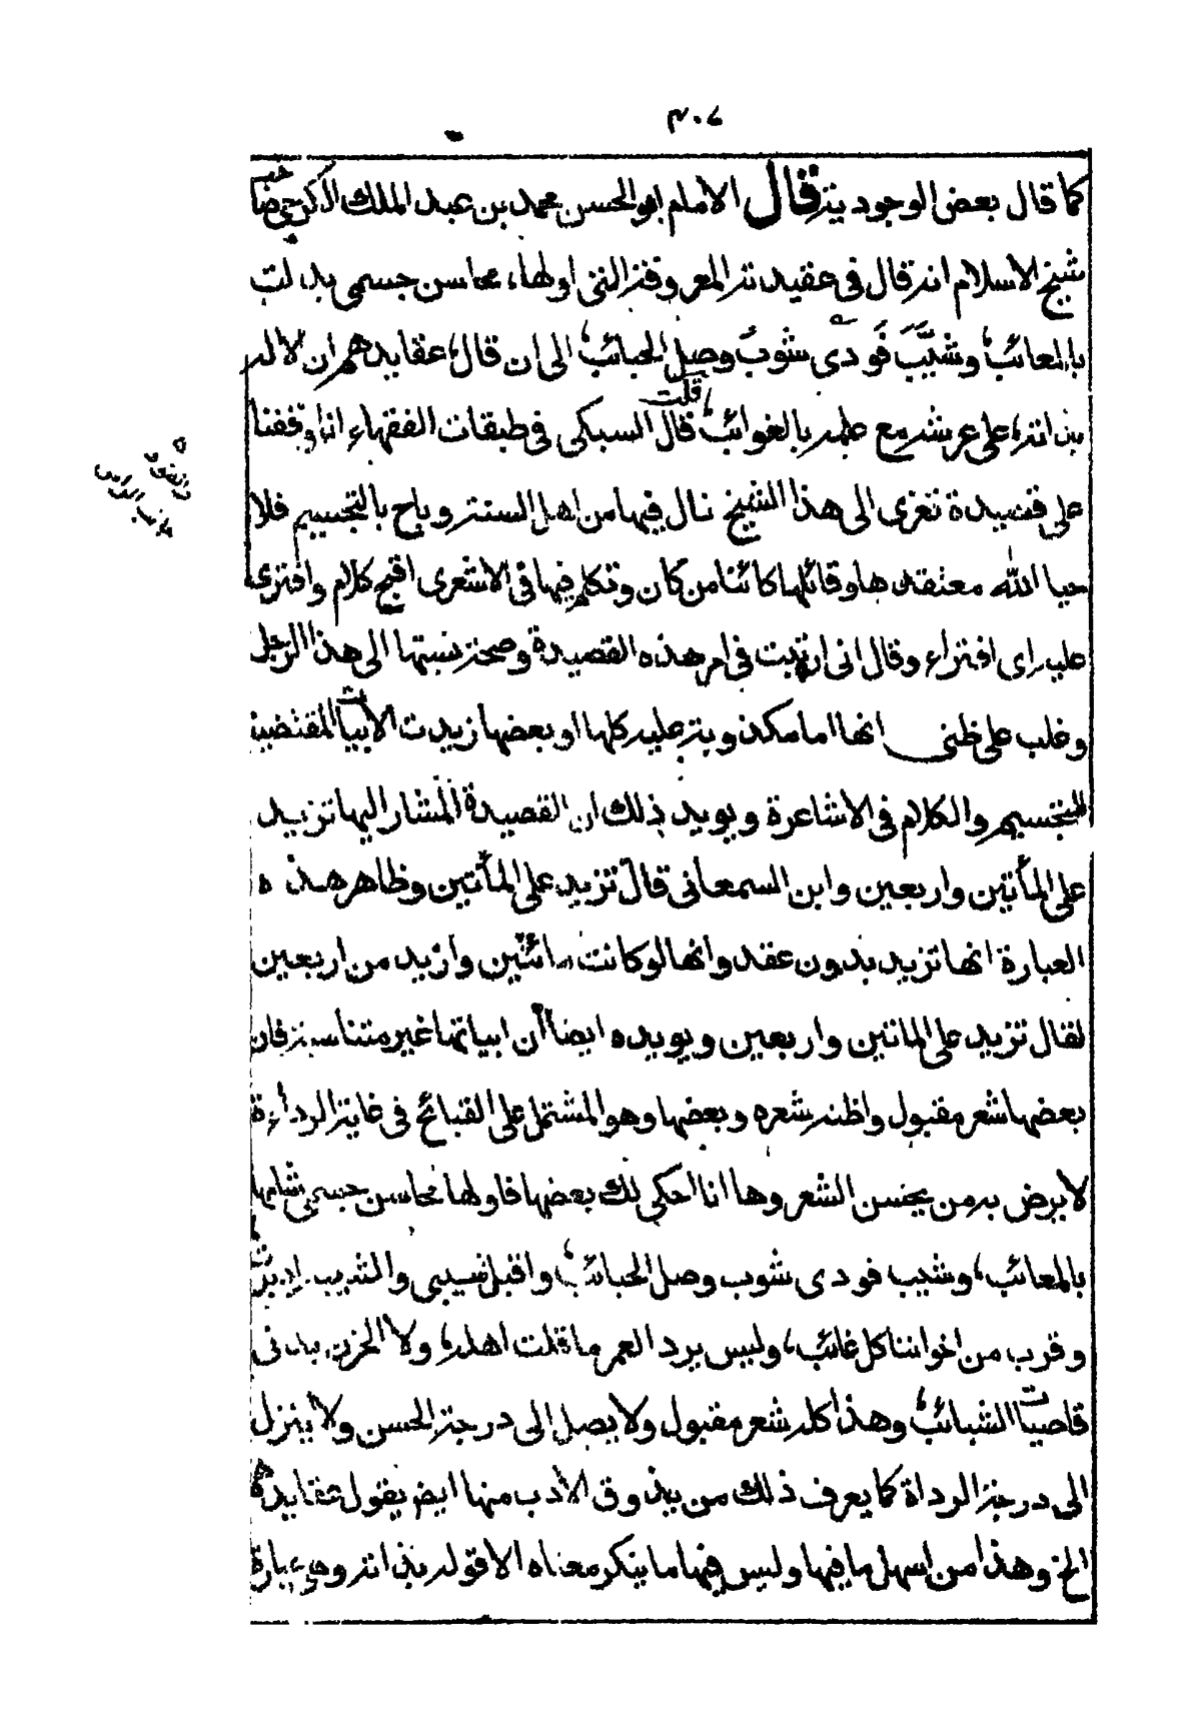 ٣٠٧
كما قال بعض الوجودية قال الامام ابو الحسن محمد بن عبد الملك الكرجي
شيخ الاسلام انه قال في عقيدته المعروفة التي اولها، محاسن جسمي بدلت
بالمعائب، وشيَّبَ فَودي شوبُ وصل الحبائب، الى ان قال، عقايدهم ان الاله
بذاته، على عرشه مع علمه بالغوائب، قلت قال السبكي في طبقات الفقهاء انا وقفنا
على قصيدة تعزى الى هذا الشيخ نال فيها من اهل السنة وباح بالتجسيم فلا
حيا الله معتقدها وقائلها كائنا من كان وتكلم فيها في الاشعري اقبح كلام وافترى
عليه اي افتراء وقال اني ارتبت في امر هذه القصيدة وصحة نسبتها الى هذا الرجل
وغلب على ظني انها اما مكذوبة عليه كلها او بعضها زيدت الابيات المقتضية
للتجسيم والكلام في الاشاعرة ويويد ذلك ان القصيدة المشار اليها تزيد
على المأتين واربعين وابن السمعاني قال تزيد على المأتين وظاهر هذه
العبارة انها تزيد بدون عقد وانها لو كانت مائتين وازيد من اربعين
لقال تزيد على الماتين واربعين ويويده ايضا أن ابياتها غير متناسبة فان
بعضها شعر مقبول واظنه شعره وبعضها وهو المشتمل على القبائح في غاية الرداءة
لا يرض به من يحسن الشعر وها انا احكي لك بعضها فاولها محاسن جسمي شانها
بالمعائب، وشيب فودي شوب وصل الحبائب، واقبل شيبي والشبيبة ادبرت
وقرب من اخواننا كل غائب، وليس يرد العمر ما قلت اهله، ولا الحزن يدني
قاصيات الشبائب، وهذا كله شعر مقبول ولا يصل الى درجة الحسن ولا ينزل
الى درجة الرداة كما يعرف ذلك من يذوق الأدب منها ايضا يقول عقايدهم
الخ وهذا من اسهل ما فيها وليس فيها ما ينكر معناه الا قوله بذاته وهي عبارة